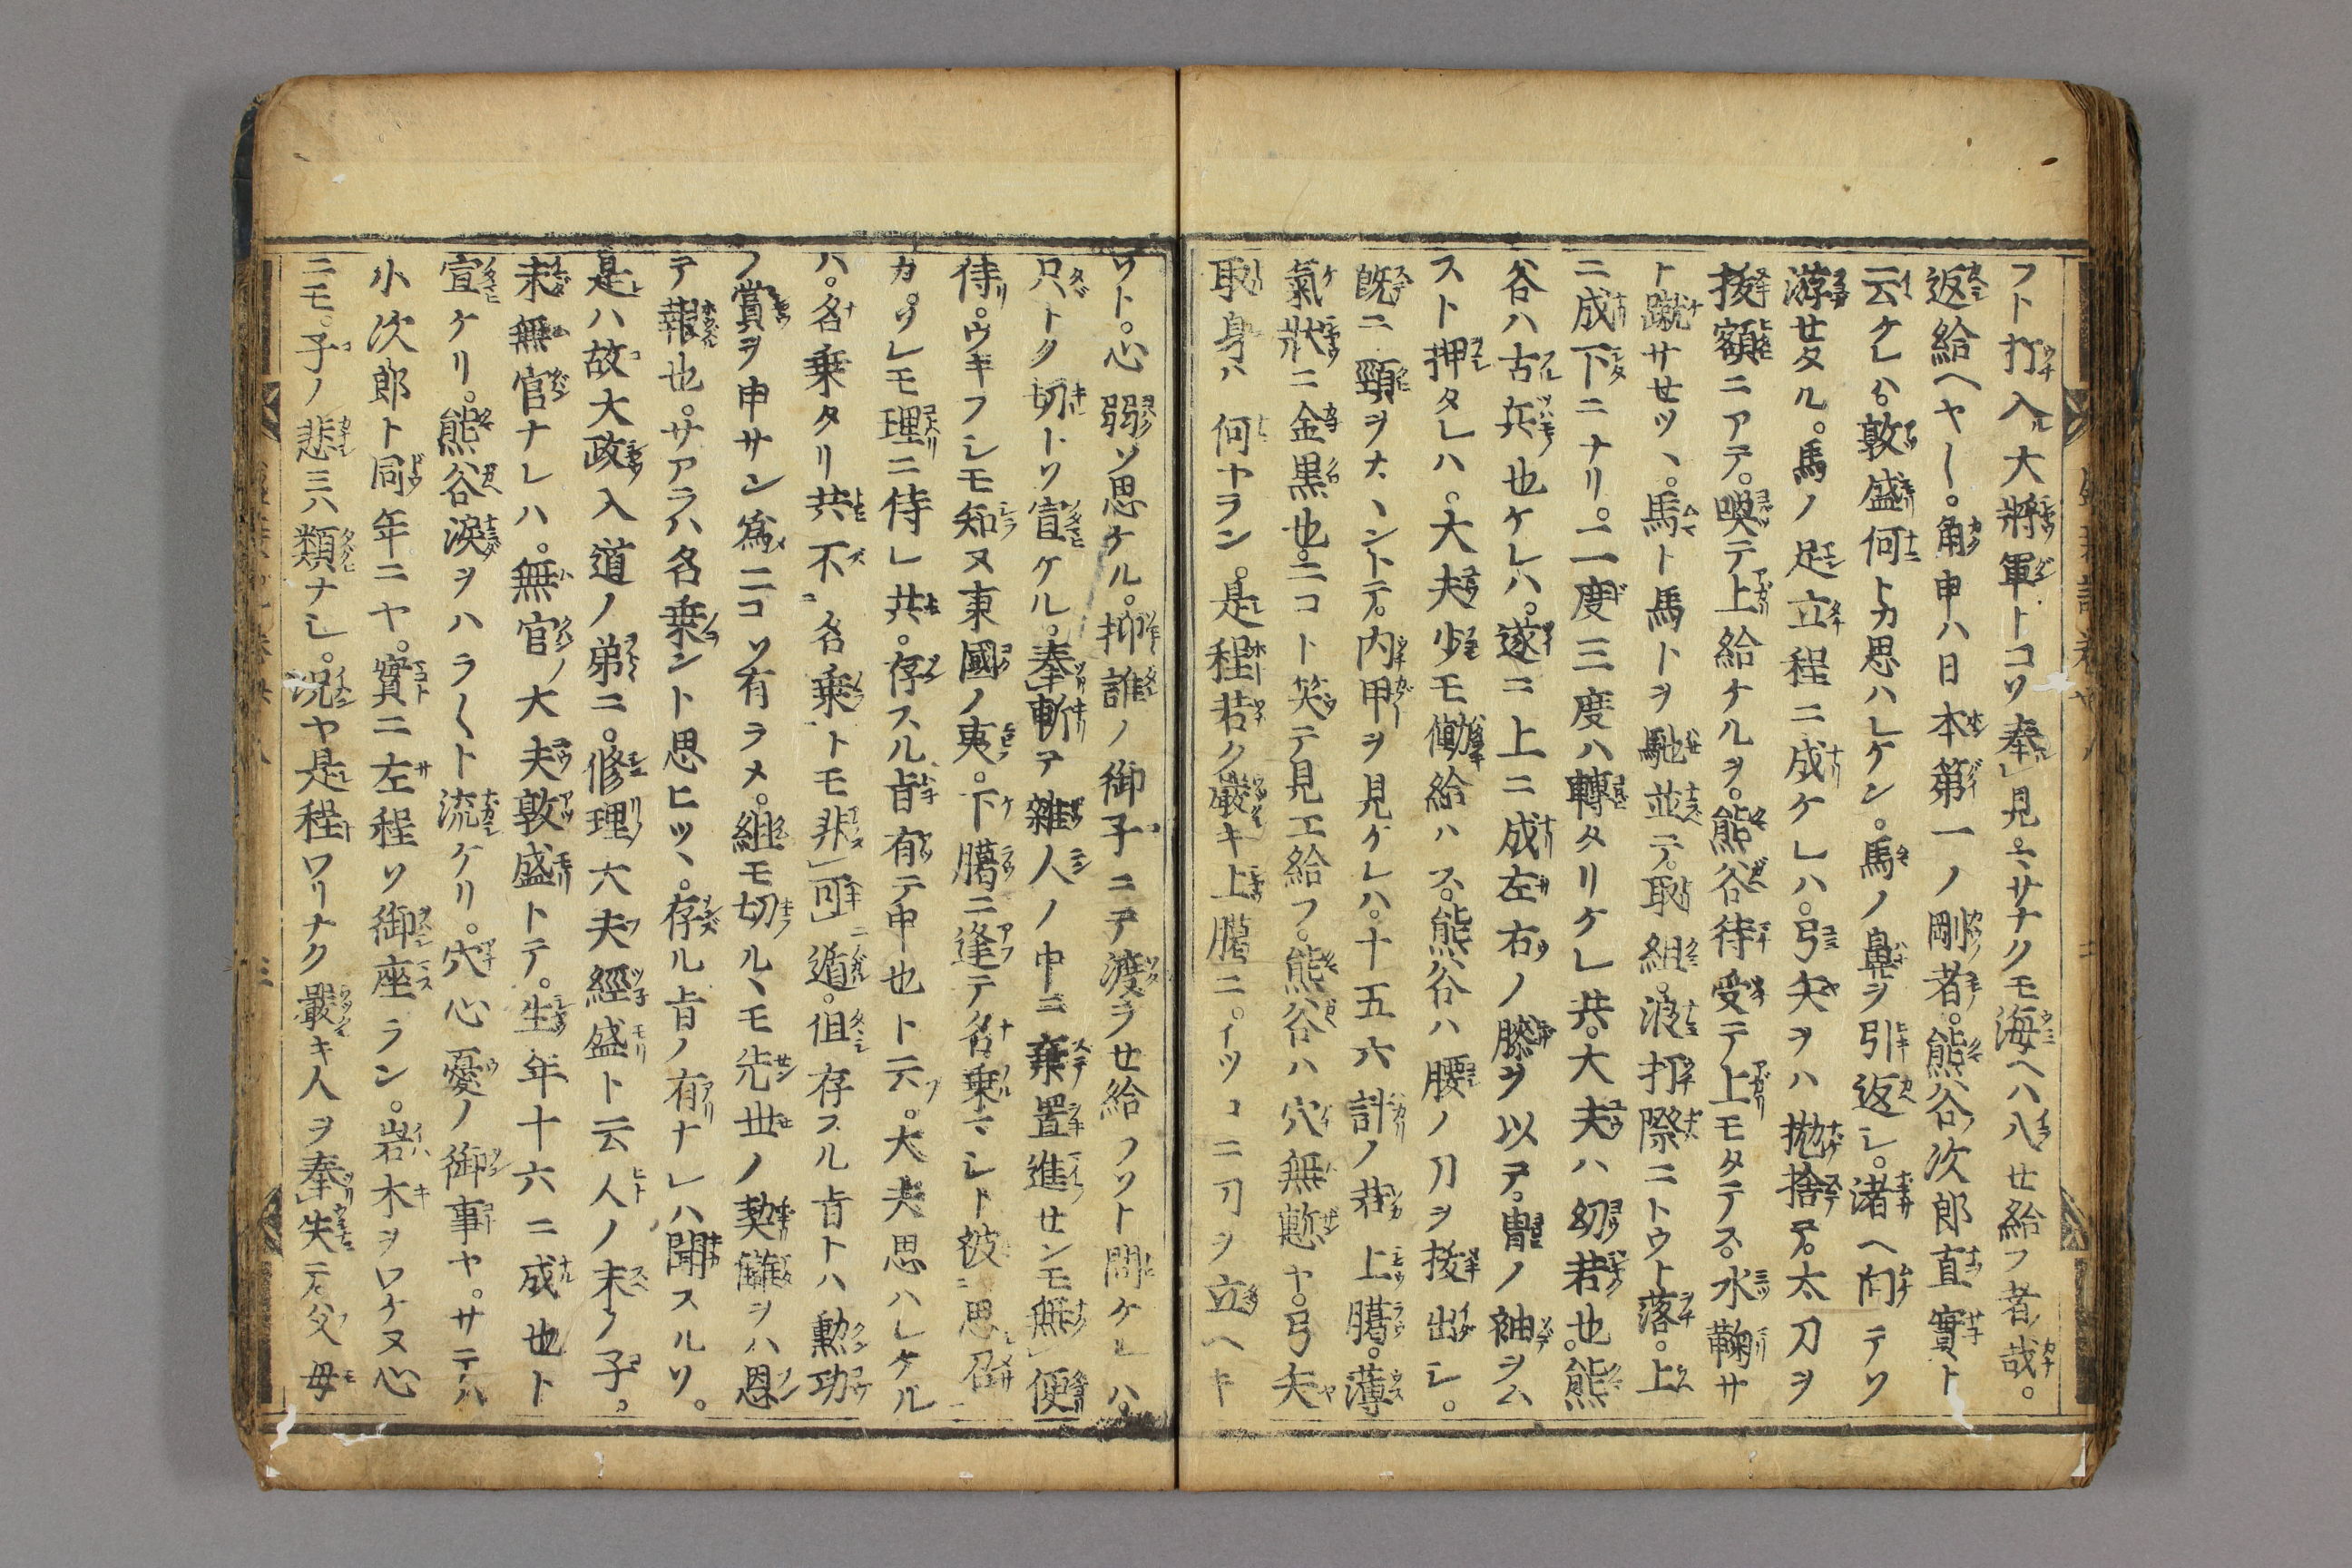 フト打入ル大將軍トコソ奉見。サナクモ海ヘハ入セ給フ者哉。
返給ヘヤ〱。角申ハ日本第一ノ剛者。熊谷次郎直實ト
云ケレハ。敦盛何トカ思ハレケン。馬ノ鼻ヲ引返シ。渚ヘ向テソ
游セタル。馬ノ足立程ニ成ケレハ。弓矢ヲハ抛捨テ。太刀ヲ
抜額ニアテ。喚テ上給ケルヲ。熊谷待受テ上モタテス。水鞠サ
ト蹴サセツヽ。馬ト馬トヲ馳並テ。取組。浪打際ニトウト落。上
ニ成下ニナリ。二度三度ハ轉タリケレ共。大夫ハ幼若也。熊
谷ハ古兵也ケレハ。遂ニ上ニ成左右ノ膝ヲ以テ。冑ノ袖ヲム
スト押タレハ。大夫少モ働給ハス。熊谷ハ腰ノ刀ヲ抜出シ。
既ニ頸ヲカヽントテ。内甲ヲ見ケレハ。十五六計ノ若上臈。薄
氣狀ニ金黑也。ニコト笑テ見エ給フ。熊谷ハ穴無慙ヤ。弓矢
取身ハ何ヤラン。是程若ク嚴キ上臈ニ。イツコニ刀ヲ立ヘキ
ソト。心弱ソ思ケル。抑誰ノ御子ニテ渡ラセ給フソト問ケレハ。
只トク切トソ宣ケル。奉斬テ雜人ノ中ニ棄置進センモ無便
侍。ウキフシモ知ヌ東國ノ夷。下臈ニ逢テ名乗ニシト被思召
カ。ソレモ理ニ侍レ共。存スル旨有テ申也ト云。大夫思ハレケル
ハ。名乗タリ共不名乗トモ非可遁。但存スル旨トハ勲功
ノ賞ヲ申サン爲ニコソ有ラメ。組モ切ルヽモ先世ノ契讎ヲハ恩
テ報也。サアラハ名乗ント思ヒツヽ。存ル旨ノ有ナレハ聞スルソ。
是ハ故大政入道ノ弟ニ。修理大夫經盛ト云人ノ末ノ子。
未無官ナレハ。無官ノ大夫敦盛トテ。生年十六ニ成也ト
宣ケリ。熊谷涙ヲハラ〱ト流ケリ。穴心憂ノ御事ヤ。サテハ
小次郎ト同年ニヤ。實ニ左程ソ御座ラン。岩木ヲワケヌ心
ニモ。子ノ悲ミハ類ナシ。况ヤ是程ワリナク嚴キ人ヲ奉失テ。父母